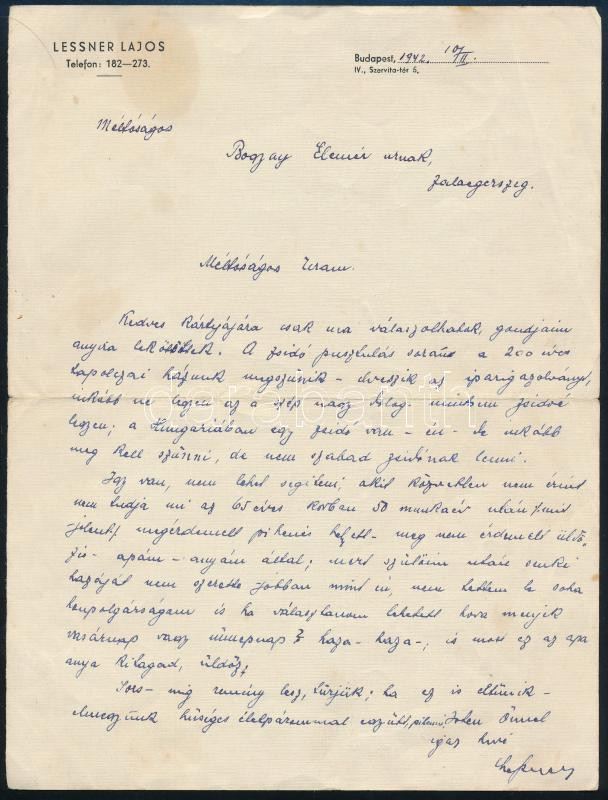 LESSNER LAJOS
Telefon: 182—273.
Budapest, 1942. 10/II.
IV., Szervita-tér 5.
Méltóságos
Bogyay Elemér urnak,
Zalaegerszeg.
Méltóságos Uram.
Kedves kártyájára csak ma válaszolhatok, gondjaim
annyira lekötöttek. A zsidó pusztulás során a 200 éves
tapolczai házunk megszünik – elveszik az iparigazolványt,
inkább ne legyen ez a szép nagy dolog mintsem zsidóé
legyen; a Hungáriában egy zsidó van – én – de inkább
meg kell szünni, de nem szabad zsidónak lenni.
Igy van, nem lehet segiteni, akit közvetlen nem érint
nem tudja mi az 65 éves korban 50 munkaév után
jelent, megérdemelt pihenés helyett – meg nem érdemelt üldö-
zés – apám – anyám által; mert szüleim után senki
hazáját nem szerette jobban mint én, nem tettem le soha
honpolgárságom és ha választanom lehetett hova menjek
vasárnap vagy ünnepnap? haza – haza –; és most ez az apa
anya kitagad, üldöz;
Sors – mig remény lesz, türjük; ha ez is eltünik –
elmegyünk hüséges élettárssal együtt, pihenni Isten Önnel
igaz hive
Lessner